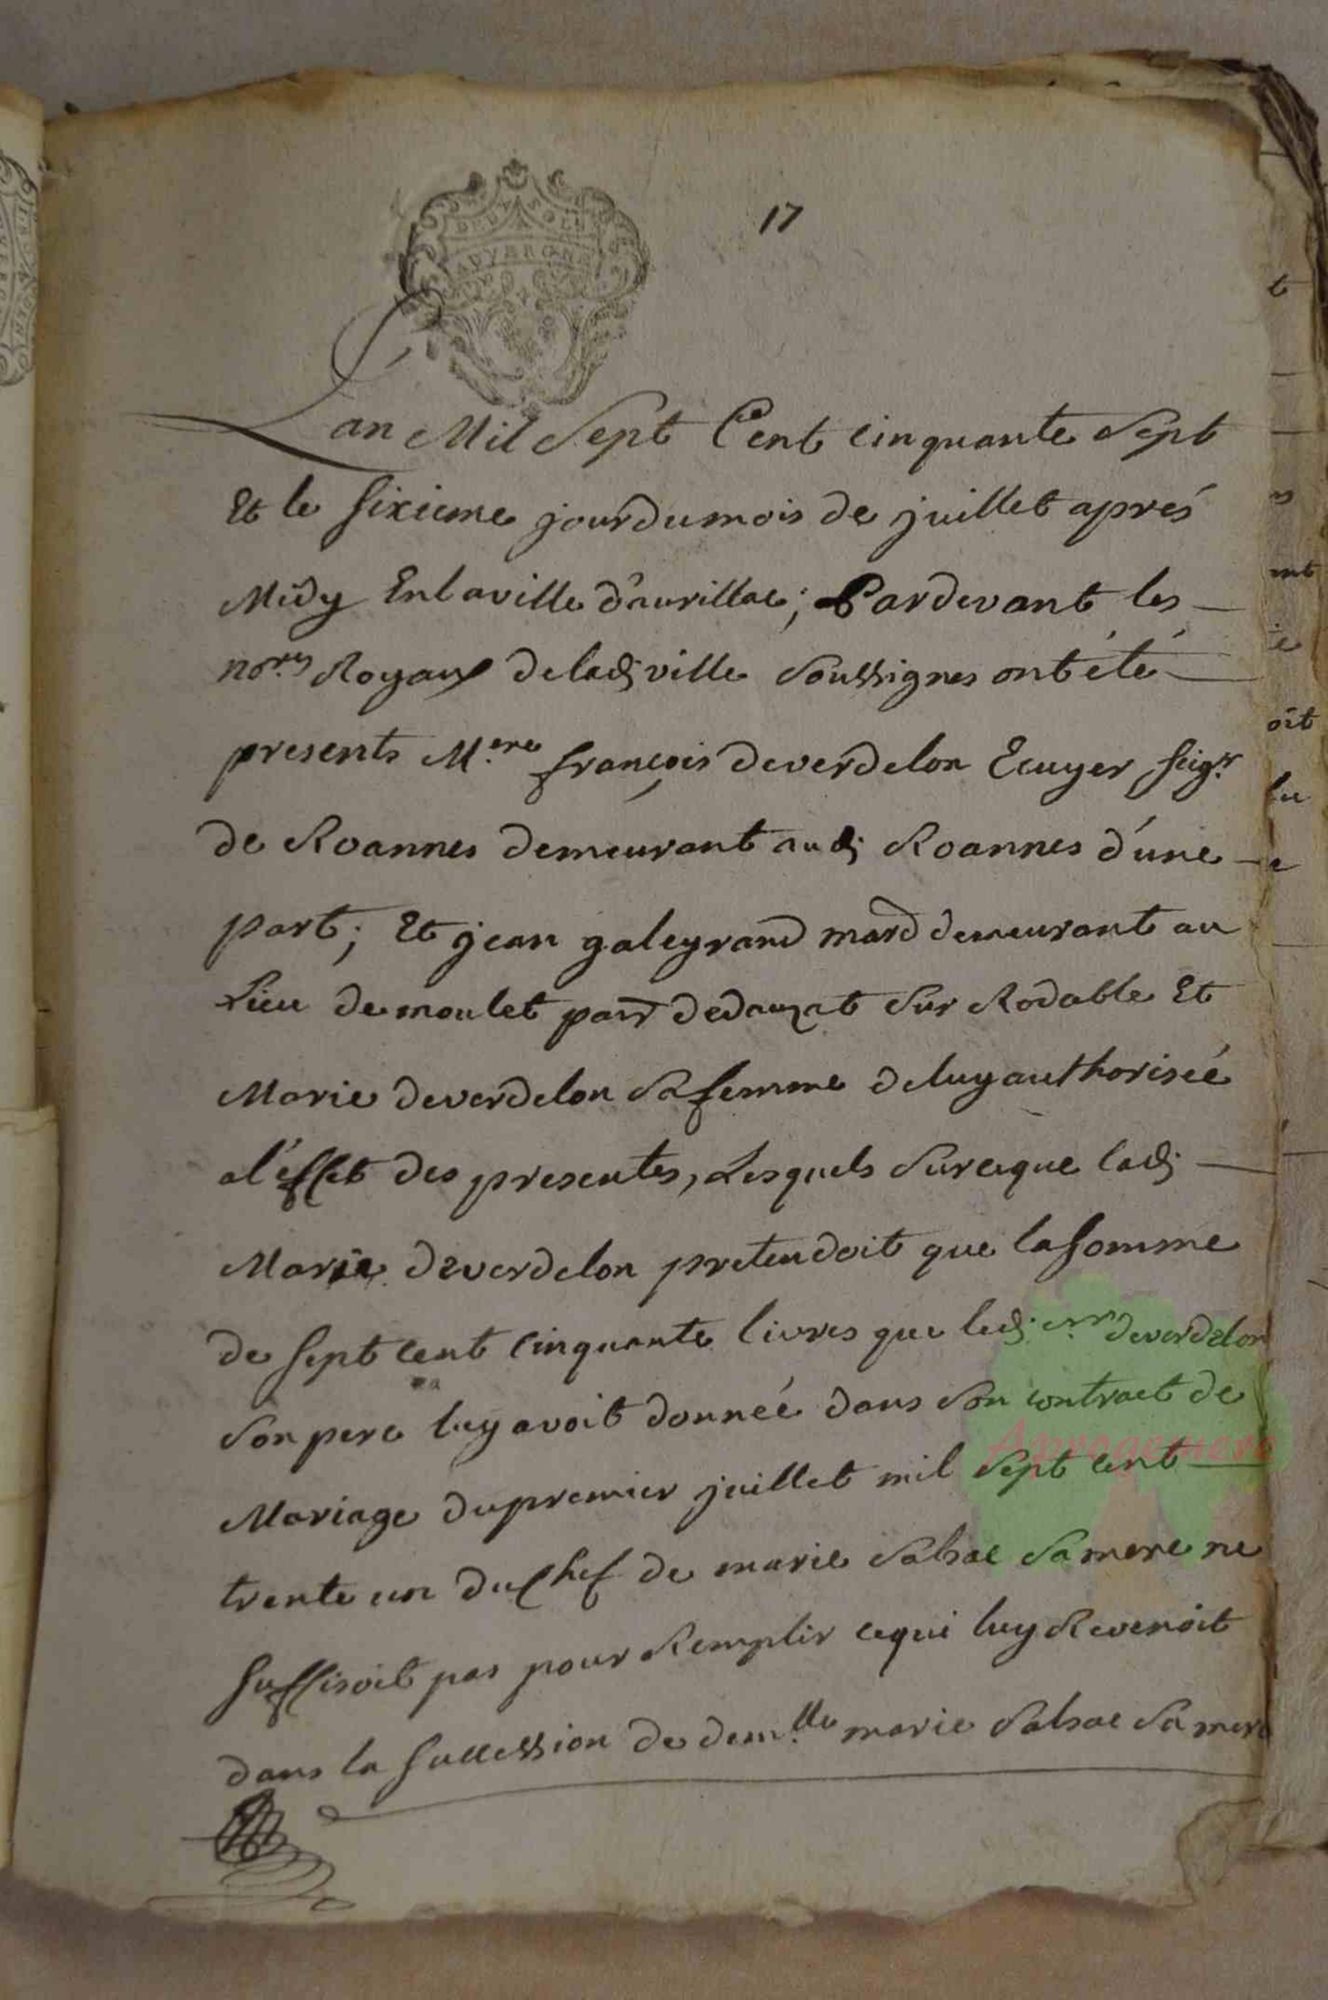 17
DEUX SOLS
AUVERGNE
L'an Mil Sept Cent cinquante Sept
Et le sixieme jour du mois de juillet aprés
Midy En la ville d'aurillac; Pardevant les
no.res Royaux de lad. ville Soussignes ont été
presents M.re françois deverdelon Ecuyer seigr
de Roannes demeurant aud. Roannes d'une
part; Et jean galeyrand mard demeurant au
Lieu de moulet parr de dauzat sur Rodable Et
Marie deverdelon sa femme de luy authorisée
a l'effet des presentes, Lesquels sur ceque lad.
Marie deverdelon pretendoit que la somme
de sept cent cinquante livres que led. deverdelon
son pere luy avoit donnée dans son contract de
Mariage du premier juillet mil sept cent
trente un du chef de marie Salsac sa mere ne
suffisoit pas pour Remplir cequi luy Revenoit
dans la succession de dem.lle marie Salsac sa mere
Aprogemere